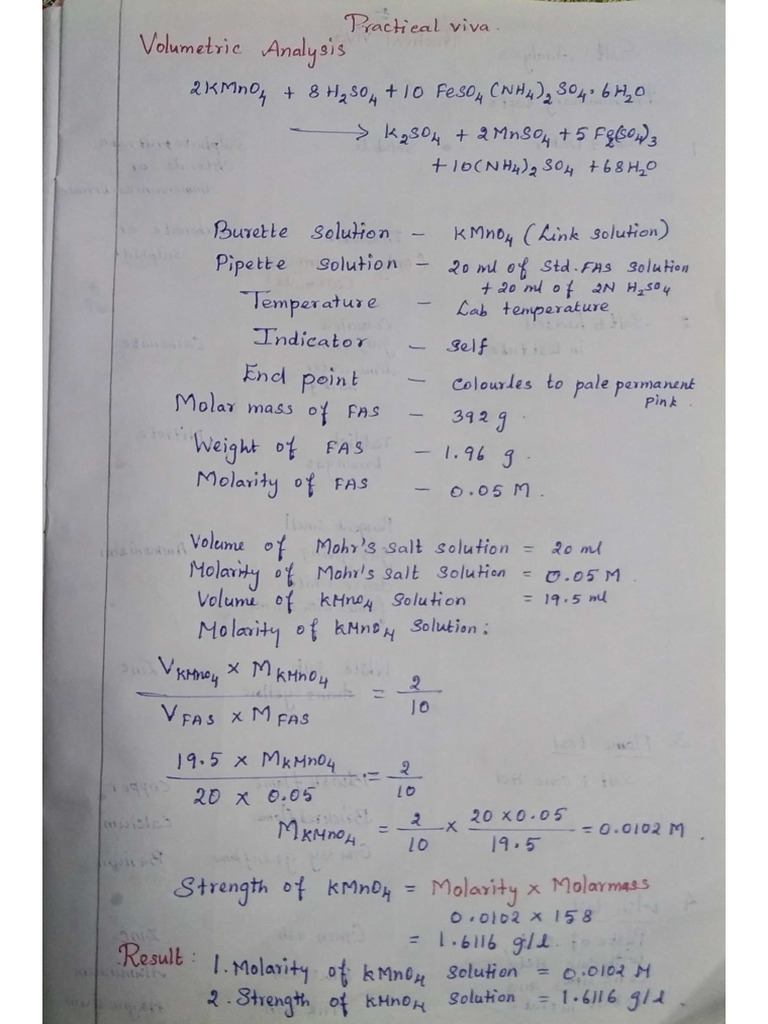 Practical viva.
Volumetric Analysis
2KMnO4 + 8H2SO4 + 10 FeSO4(NH4)2SO4.6H2O
⟶ K2SO4 + 2MnSO4 + 5Fe2(SO4)3
+ 10(NH4)2SO4 + 68H2O
Burette solution – KMnO4 (Link solution)
Pipette solution – 20 ml of Std. FAS solution
+ 20 ml of 2N H2SO4
Temperature – Lab temperature
Indicator – Self
End point – Colourles to pale permanent
Pink.
Molar mass of FAS – 392 g.
Weight of FAS – 1.96 g.
Molarity of FAS – 0.05 M.
Volume of Mohr's salt solution = 20 ml
Molarity of Mohr's salt solution = 0.05 M.
Volume of KMnO4 solution = 19.5 ml
Molarity of KMnO4 solution:
VKMnO4 × MKMnO4 / VFAS × MFAS = 2/10
19.5 × MKMnO4 / 20 × 0.05 = 2/10
MKMnO4 = 2/10 × 20 × 0.05 / 19.5 = 0.0102 M.
Strength of KMnO4 = Molarity × Molarmass
0.0102 × 158
= 1.6116 g/l.
Result:
1. Molarity of KMnO4 solution = 0.0102 M
2. Strength of KMnO4 solution = 1.6116 g/l.